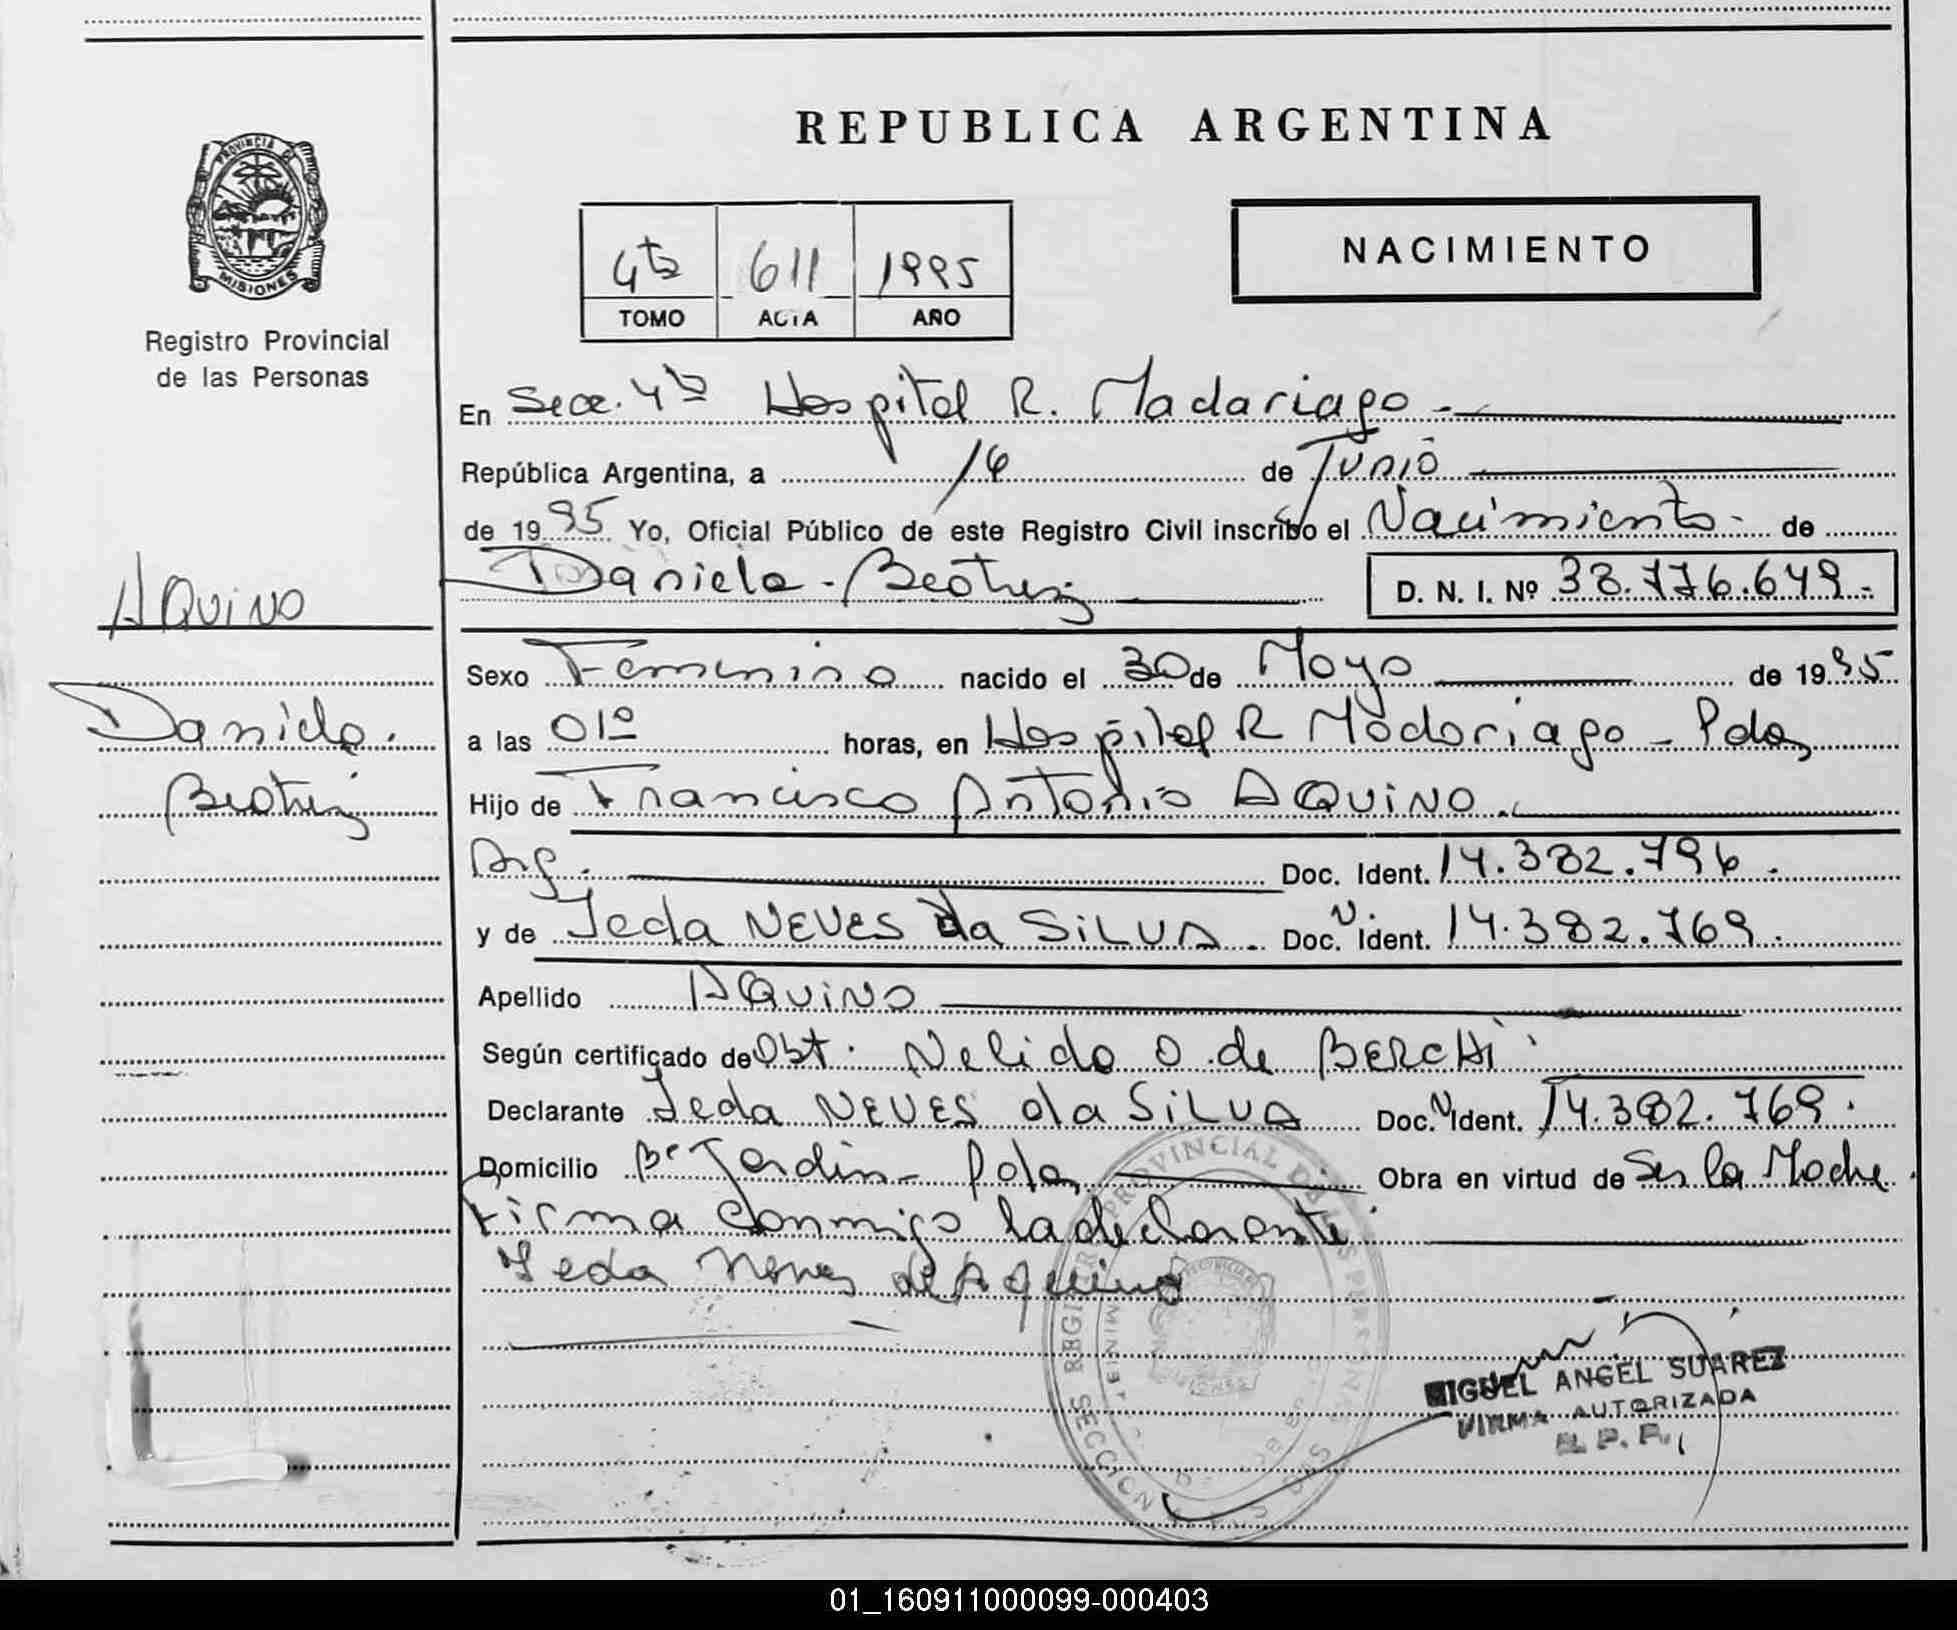 REPUBLICA ARGENTINA
PROVINCIA DE
MISIONES
Registro Provincial
de las Personas
4ta 611 1995
TOMO ACTA AÑO
NACIMIENTO
En Secc. 4ta Hospital R. Madariaga.
República Argentina, a 14 de Junio
de 1995 Yo, Oficial Público de este Registro Civil inscribo el Nacimiento de
Daniela Beatriz D. N. I. Nº 38.776.649.
AQUINO
Daniela
Beatriz
Sexo Femenino nacido el 30 de Mayo de 1995
a las 01º horas, en Hospital R Madariaga - Pdas
Hijo de Francisco Antonio AQUINO.
Arg. Doc. Ident. 14.382.796.
y de Ieda NEVES da SILVA. Doc. N. Ident. 14.382.769.
Apellido AQUINO
Según certificado de Obt. Nelida O. de BERCHI
Declarante Ieda NEVES da SILVA Doc. N Ident. 14.382.769.
Domicilio Bº Jardin - Pdas Obra en virtud de Ser la Madre.
Firma conmigo la declarante
Ieda Neves de Aquino
MIGUEL ANGEL SUAREZ
FIRMA AUTORIZADA
R. P. P.
01_160911000099-000403